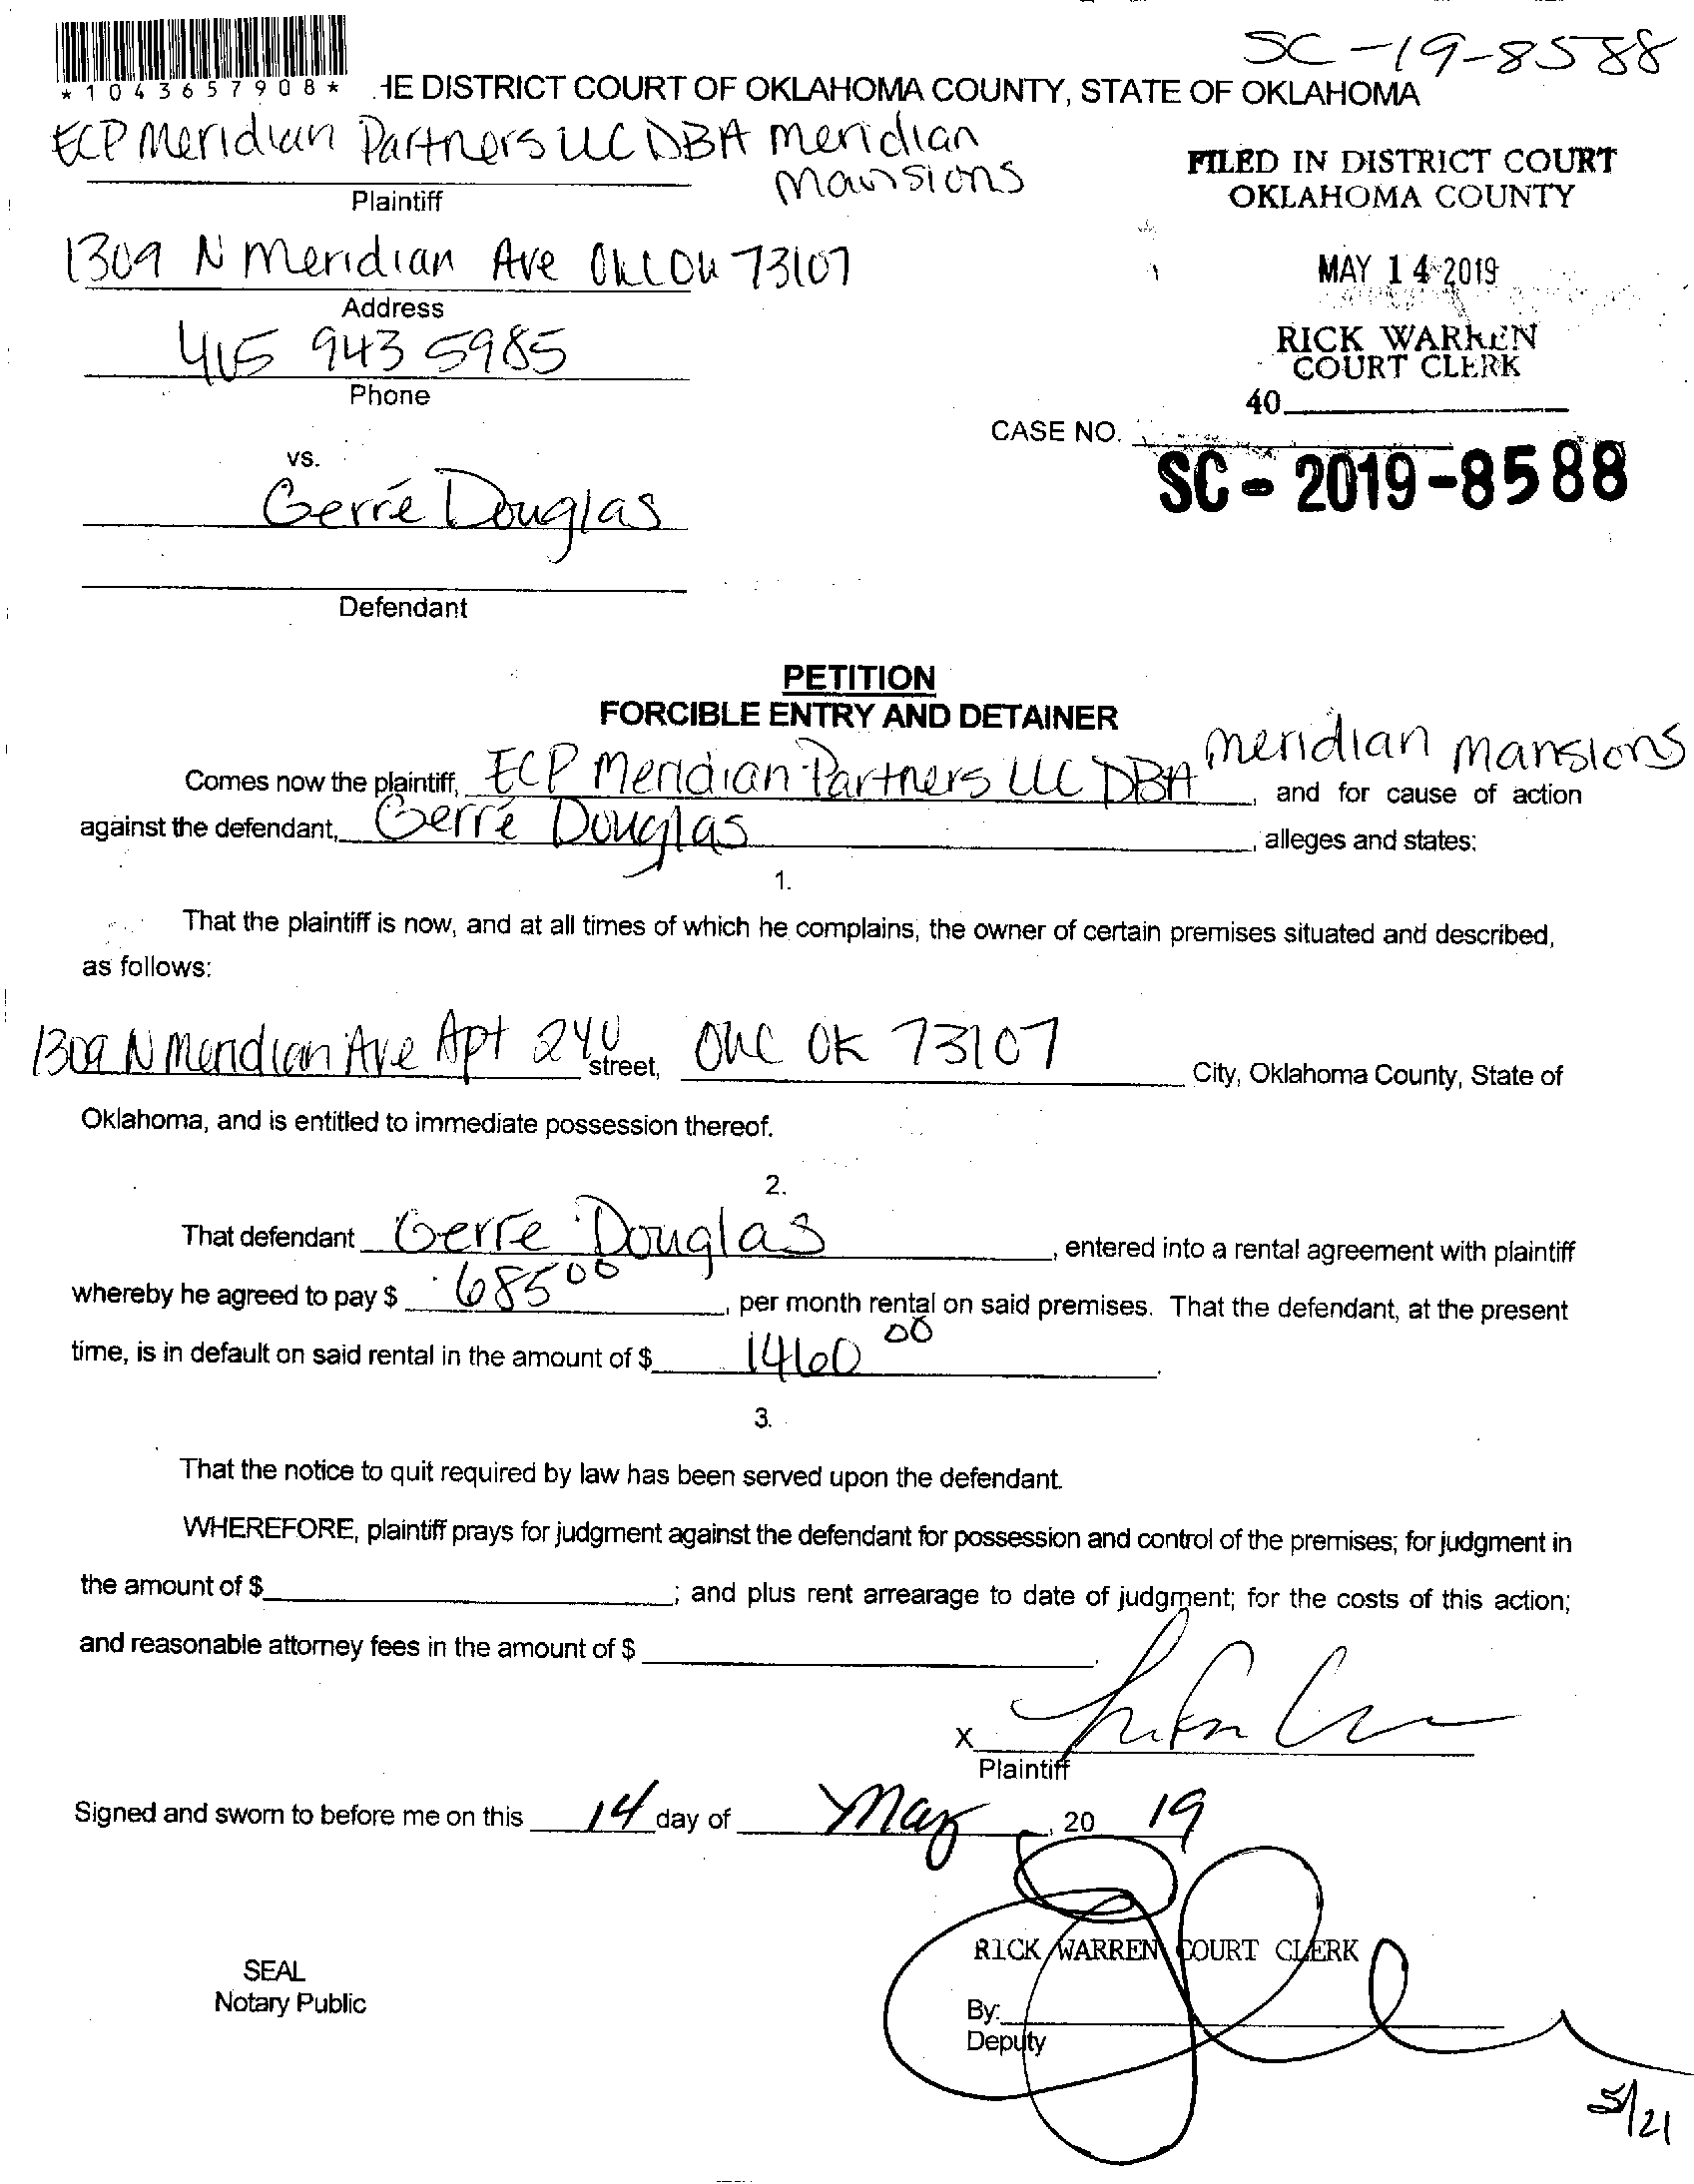 SC-19-8588
*1043657908* HE DISTRICT COURT OF OKLAHOMA COUNTY, STATE OF OKLAHOMA
ECP Meridian Partners LLC DBA Meridian
Mansions
Plaintiff
FILED IN DISTRICT COURT
OKLAHOMA COUNTY
1309 N Meridian Ave OKC OK 73107
Address
MAY 14 2019
415 943 5985
Phone
RICK WARREN
COURT CLERK
40
CASE NO.
SC - 2019 - 8588
vs.
Gerré Douglas
Defendant
PETITION
FORCIBLE ENTRY AND DETAINER
Comes now the plaintiff, ECP Meridian Partners LLC DBA Meridian Mansions, and for cause of action
against the defendant, Gerré Douglas, alleges and states:
1.
That the plaintiff is now, and at all times of which he complains, the owner of certain premises situated and described,
as follows:
1309 N Meridian Ave Apt 240 street, OKC OK 73107 City, Oklahoma County, State of
Oklahoma, and is entitled to immediate possession thereof.
2.
That defendant Gerre Douglas, entered into a rental agreement with plaintiff
whereby he agreed to pay $ 685 00, per month rental on said premises. That the defendant, at the present
time, is in default on said rental in the amount of $ 1460 00.
3.
That the notice to quit required by law has been served upon the defendant.
WHEREFORE, plaintiff prays for judgment against the defendant for possession and control of the premises; for judgment in
the amount of $ ; and plus rent arrearage to date of judgment; for the costs of this action;
and reasonable attorney fees in the amount of $ .
X
Plaintiff
Signed and sworn to before me on this 14 day of May, 20 19
RICK WARREN COURT CLERK
SEAL
Notary Public
By:
Deputy
5/21